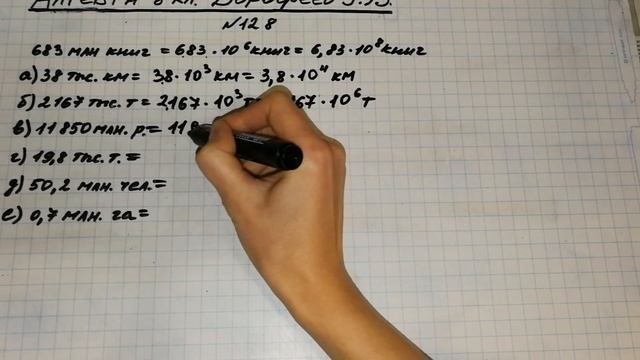 №128
683 млн книг = 683·10⁶ книг = 6,83·10⁸ книг
а) 38 тыс. км = 38·10³ км = 3,8·10⁴ км
б) 2167 тыс. т = 2167·10³ 167·10⁶ т
в) 11850 млн. р. = 118
г) 19,8 тыс. т. =
д) 50,2 млн. чел. =
е) 0,7 млн. га =